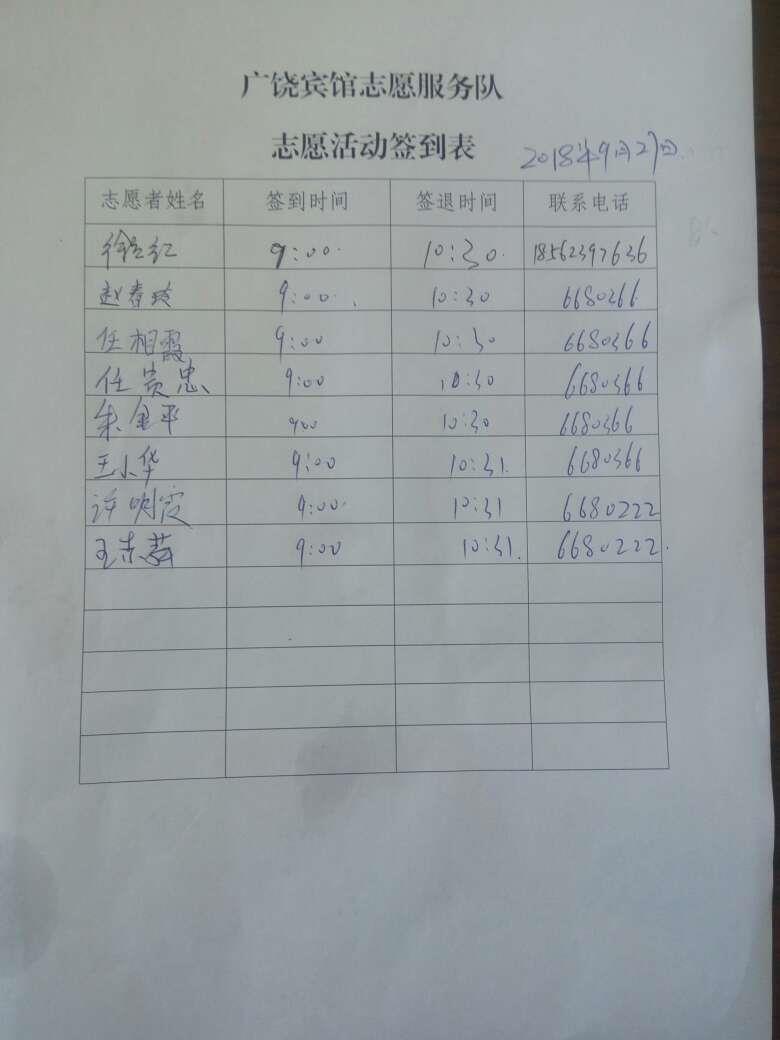 广饶宾馆志愿服务队
志愿活动签到表 2018年9月27日.
志愿者姓名 签到时间 签退时间 联系电话
徐 红 9:00 10:30 18562397636
赵春玲 9:00 10:30 6680366
任相霞 9:00 10:30 6680366
任贵忠 9:00 10:30 6680366
朱金平 900 10:30 6680366
王小华 9:00 10:31 6680366
许明霞 9:00 10:31 6680222
王 9:00 10:31 6680222